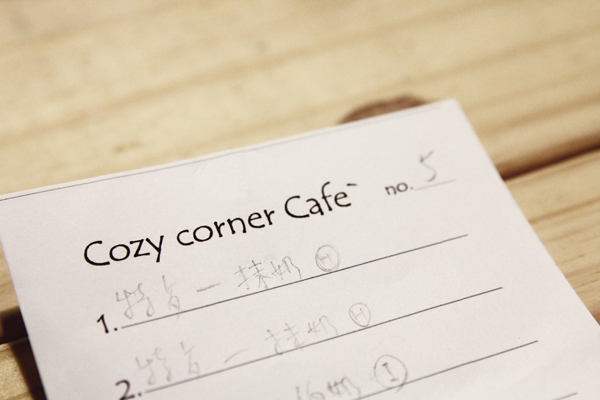 Cozy corner Cafe` no. 5
1. 特旨一抹奶 Ⓗ
2. 特旨一抹奶 Ⓗ
奶 Ⓘ